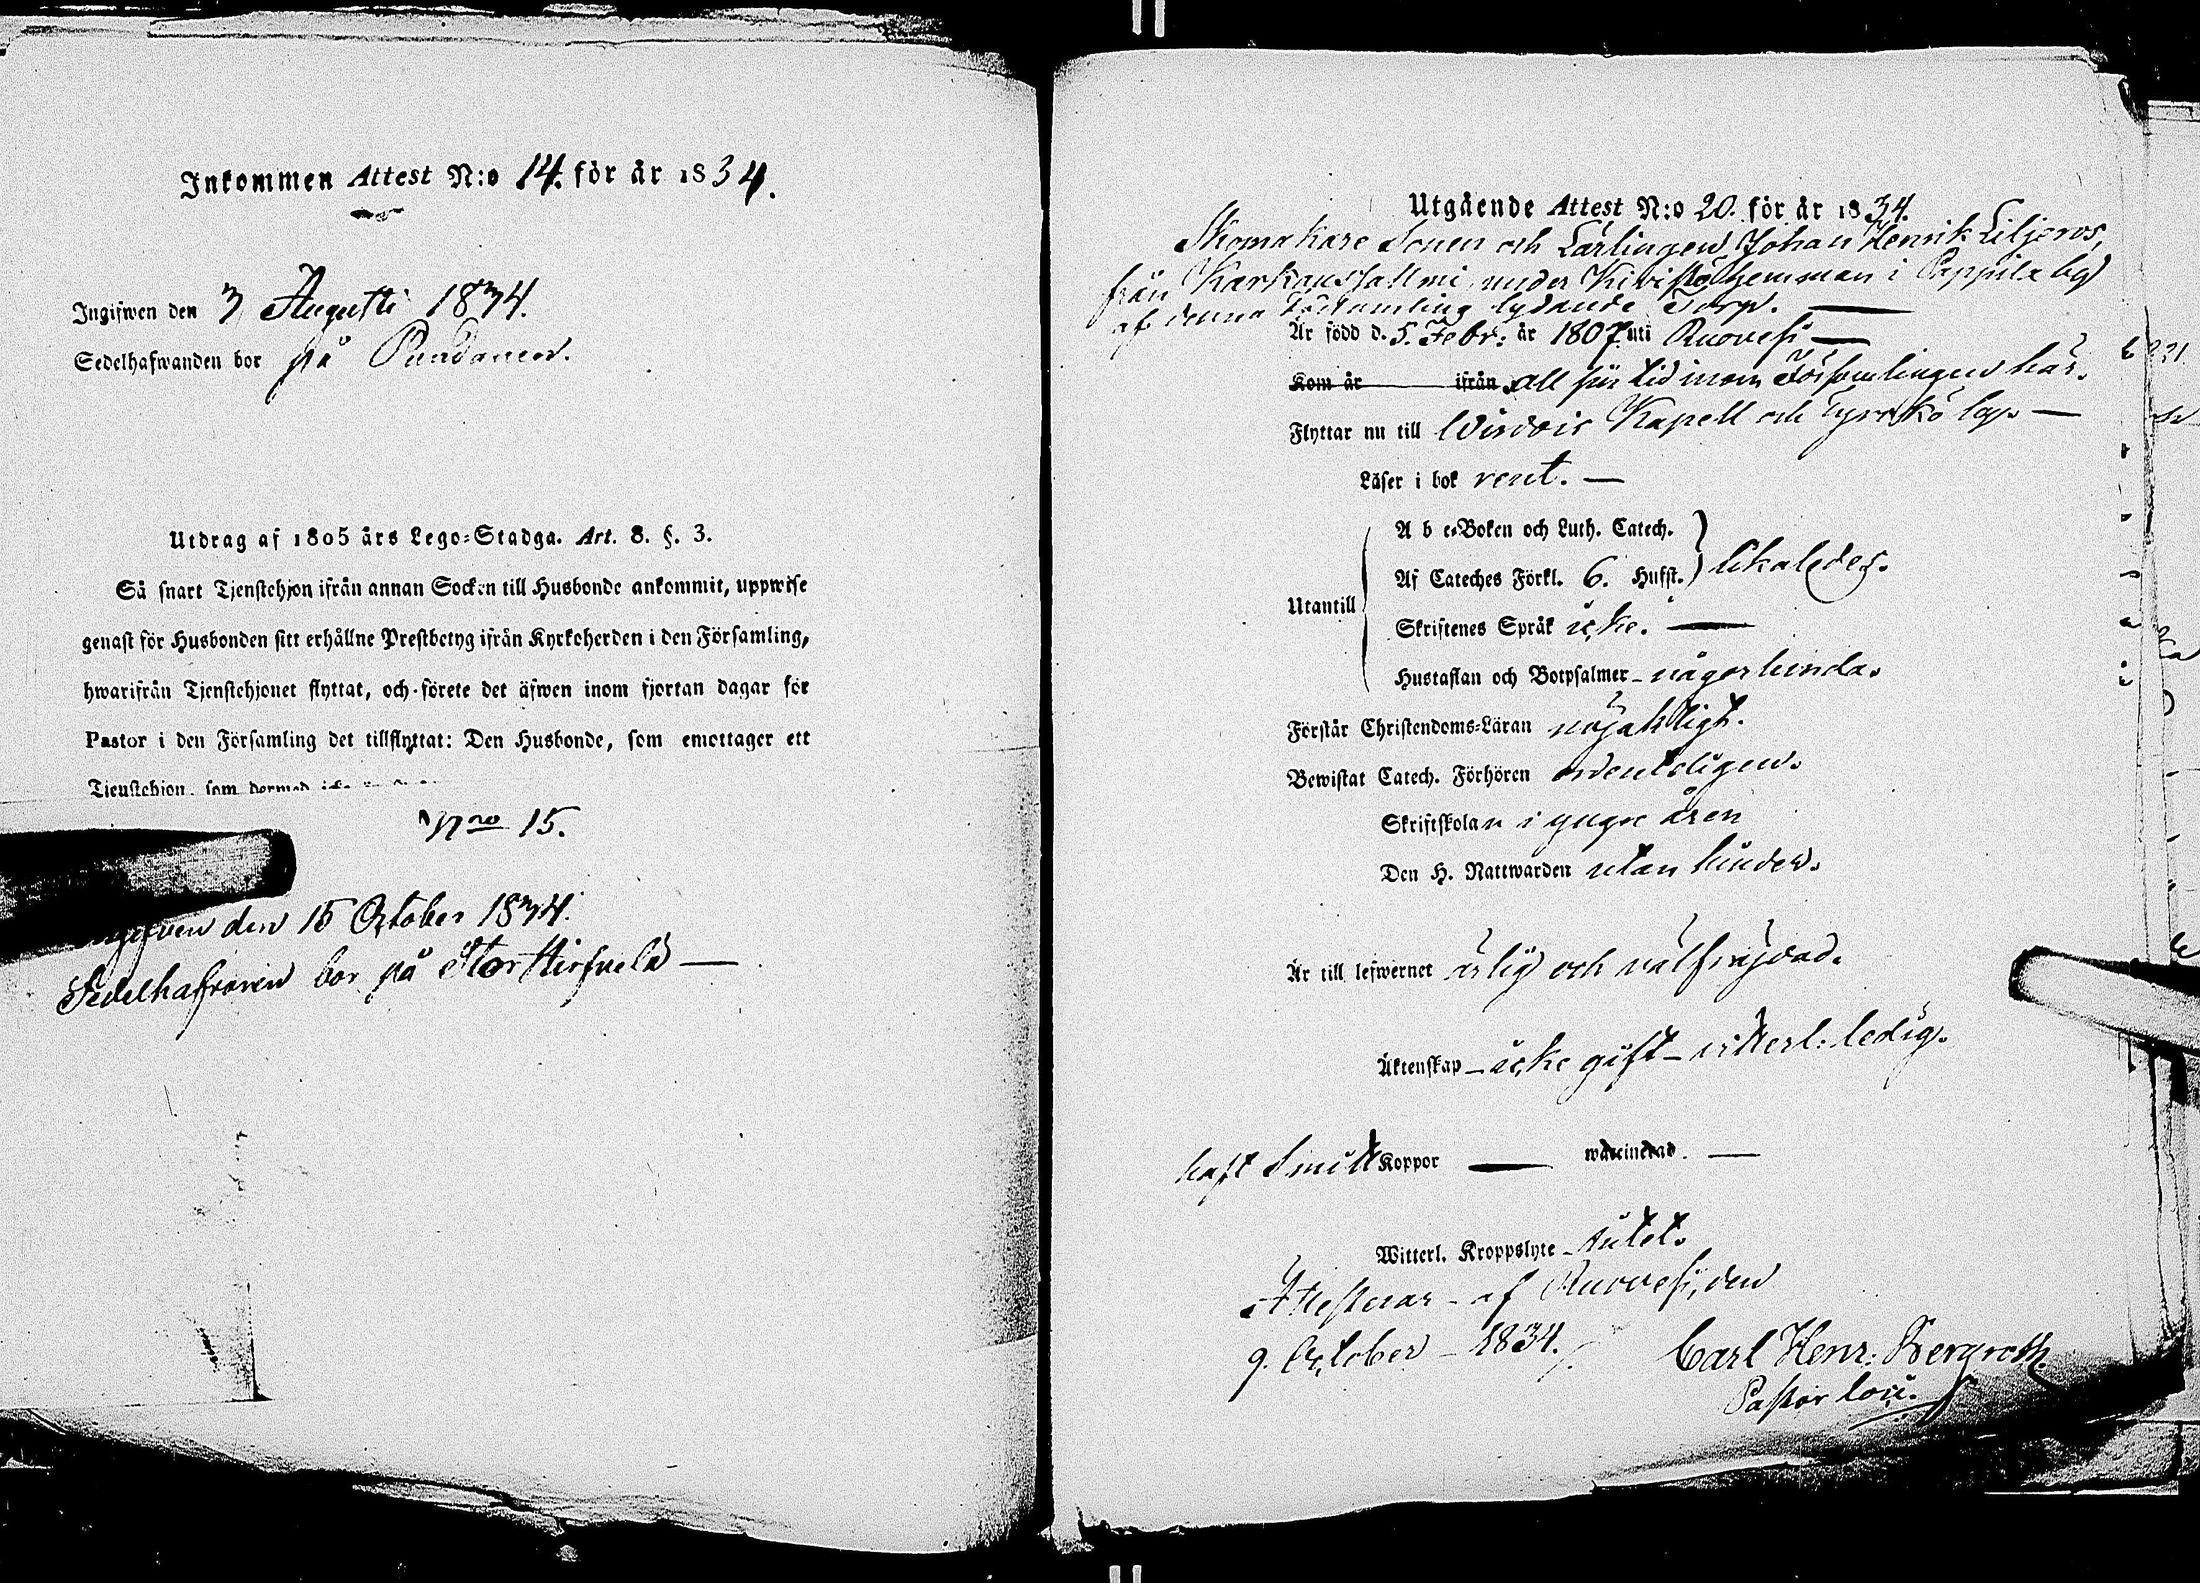 Inkommen Attest N:o 14. för år 1834.
Ingifwen den 3 Augusti 1834.
Sedelhafwanden bor på
Utdrag af 1805 års Lego-Stadga. Art. 8. §. 3.
Så snart Tjenstehjon ifrån annan Socken till Husbonde ankommit, uppwise
genast för Husbonden sitt erhållne Prestbetyg ifrån Kyrkoherden i den Församling,
hwarifrån Tjenstehjonet flyttat, och förete det äfwen inom fjortan dagar för
Pastor i den Församling det tillflyttat: Den Husbonde, som emottager ett
Tjenstehjon, som dermed
Nro 15.
Ingifven den 15 October 1834.
Sedelhafvaren bor på Stor Hirsuelä —
Utgående Attest N:o 20. för år 1834.
Skomakare Sonen och Lärlingen Johan Henrik Liljeros,
från Karkaussalmi under Kivistö hemman i Pappila by
af denna Församling lydande Torp. —
Är född d. 5. Febr: år 1807 uti Ruovesi —
Kom år ifrån all sin tid inom Församlingen här.
Flyttar nu till Virdois Kapell och —
Läser i bok rent. —
A b c-Boken och Luth. Catech.
Af Cateches Förkl. 6. Hufst. } likaledes.
Utantill
Skriftenes Språk icke. —
Hustaflan och Botpsalmer - någorlunda.
Förstår Christendoms-Läran nöjaktligt.
Bewistat Catech. Förhören ordenteligen.
Skriftskolan i yngre åren
Den H. Nattwarden utan hinder.
Är till lefwernet ärlig och välfrägdad.
Äktenskap - icke gift - vitterl: ledig.
haft Smittkoppor — waccinerad. —
Witterl. Kroppslyte - intet.
Attesterar - af Ruovesi, den
9. October - 1834.
Carl Henr: Bergroth.
Pastor loci.